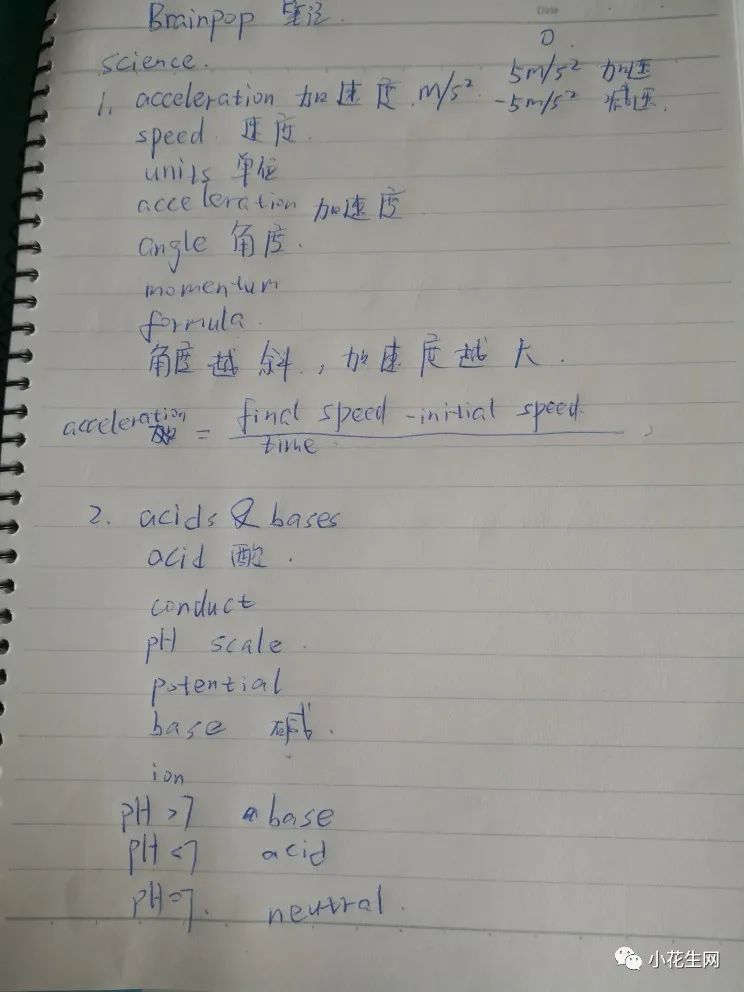 Date
Brainpop 笔记.
0
science.
5m/s² 加速
1. acceleration 加速度 m/s². -5m/s² 减速.
speed. 速度.
units 单位
acceleration 加速度
angle 角度.
momentum
formula.
角度越斜，加速度越大.
acceleration = final speed - initial speed
time.
2. acids & bases
acid 酸.
conduct
pH scale.
potential
base 碱.
ion
pH >7 base
pH <7 acid
pH=7. neutral.
小花生网